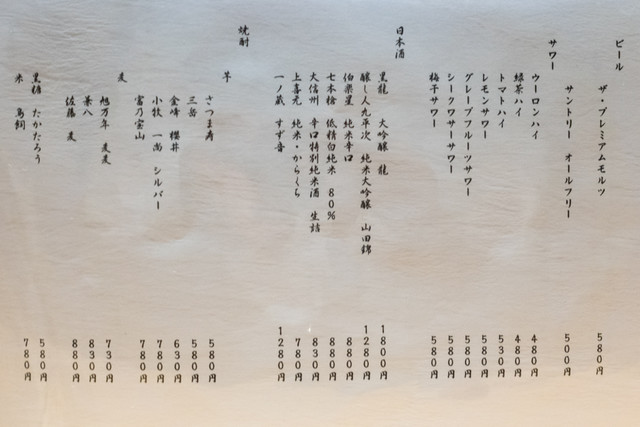 ビール
ザ・プレミアムモルツ 580円
サントリー オールフリー 500円
サワー
ウーロンハイ 480円
緑茶ハイ 480円
トマトハイ 530円
レモンサワー 580円
グレープフルーツサワー 580円
シークワサーサワー 580円
梅干サワー 580円
日本酒
黒龍 大吟醸 龍 1800円
醸し人九平次 純米大吟醸 山田錦 1280円
伯楽星 純米辛口 880円
七本槍 低精白純米 80% 880円
大信州 辛口特別純米酒 生詰 830円
上喜元 純米・からくち 780円
一ノ蔵 すず音 1280円
焼酎
芋
さつま寿 580円
三岳 580円
金峰 櫻井 630円
小牧 一尚 シルバー 780円
富乃宝山 780円
麦
旭万年 麦麦 730円
兼八 830円
佐藤 麦 880円
黒糖 たかたろう 580円
米 鳥飼 780円